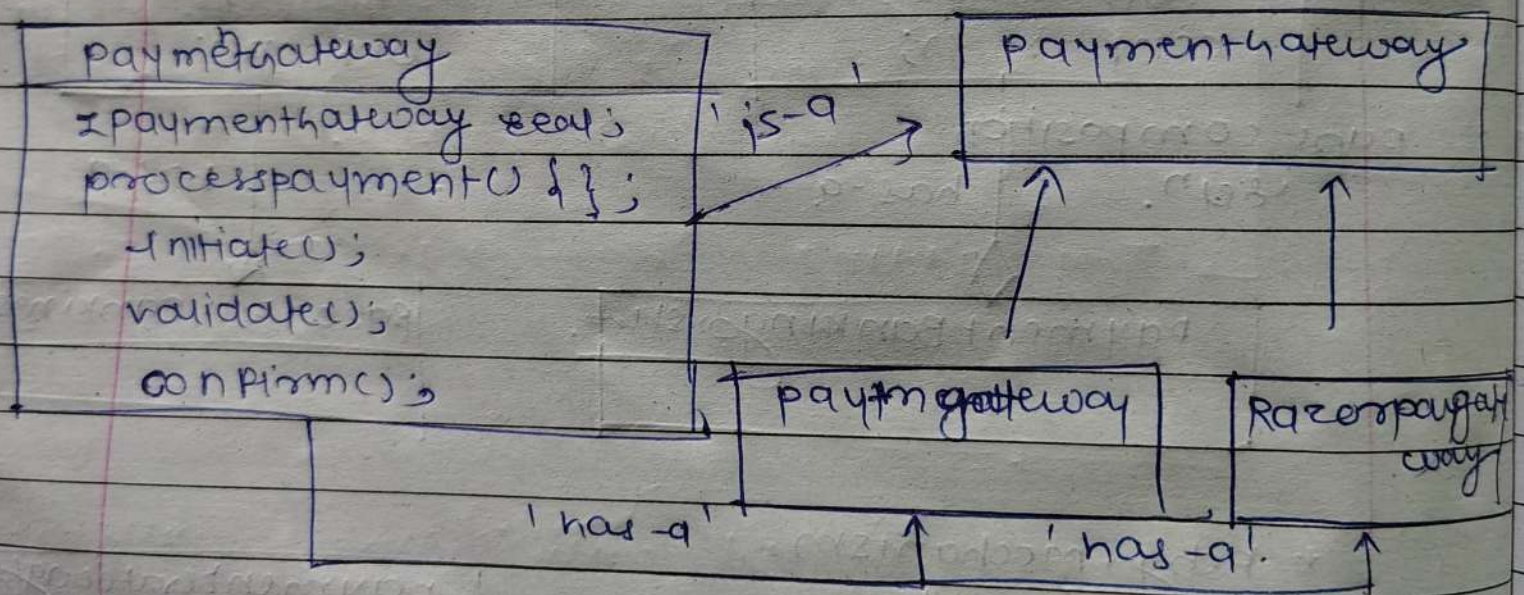 paymetGateway
IpaymentGateway real;
processpayment() { };
Initiate();
validate();
confirm();
'is-a'
paymentGateway
paytmgateway
Razorpaygat
eway
'has-a'
'has-a'.